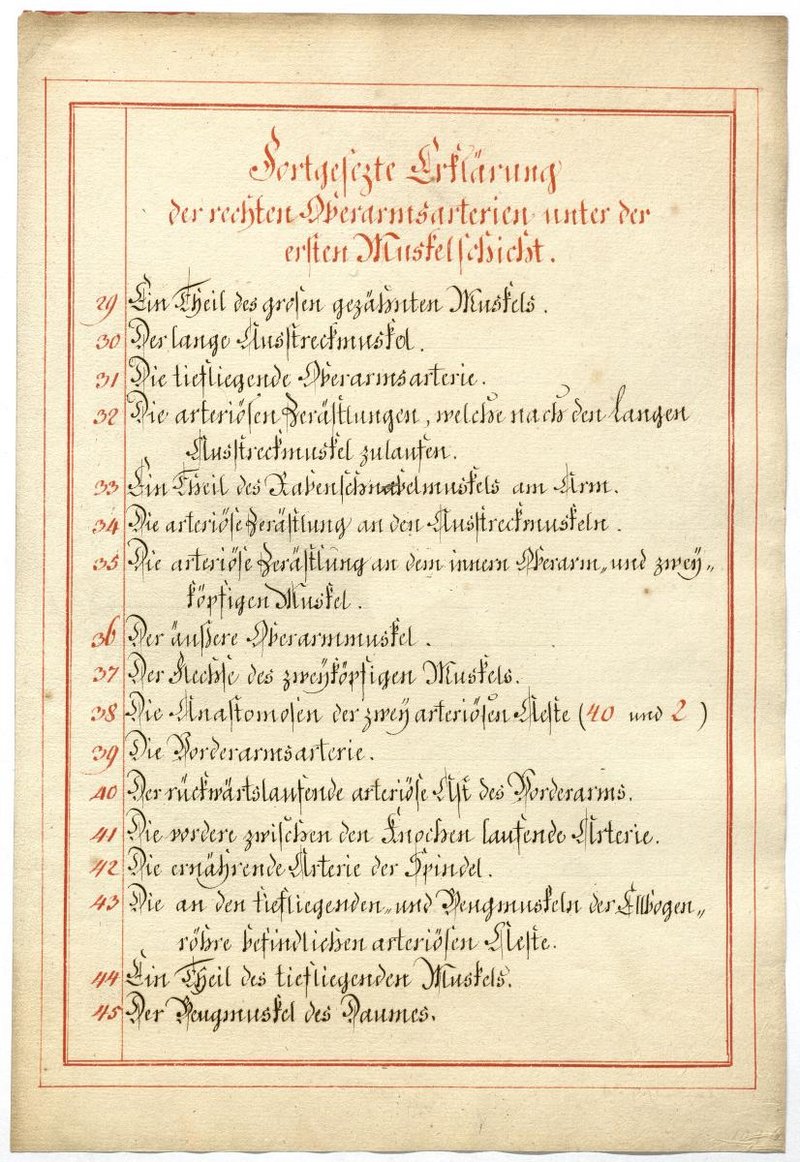 Fortgesezte Erklärung
der rechten Oberarmsarterien unter der
ersten Muskelschicht.
29 Ein Theil des grosen gezähnten Muskels.
30 Der lange Ausstreckmuskel.
31 Die tiefliegende Oberarmsarterie.
32 Die arteriösen Zerästlungen, welche nach den langen
Ausstreckmuskel zulaufen.
33 Ein Theil des Rabenschnabelmuskels am Arm.
34 Die arteriöse Zerästlung an den Ausstreckmuskeln.
35 Die arteriöse Zerästlung an dem innern Oberarm„ und zwey„
köpfigen Muskel.
36 Der äussere Oberarmmuskel.
37 Der Flechse des zweyköpfigen Muskels.
38 Die Anastomosen der zwey arteriösen Aeste (40 und 2)
39 Die Vorderarmsarterie.
40 Der rückwärtslaufende arteriöse Ast des Vorderarms.
41 Die vordere zwischen den Knochen laufende Arterie.
42 Die ernährende Arterie der Spindel.
43 Die an den tiefliegenden„ und Beugmuskeln der Ellbogen„
röhre befindlichen arteriösen Aeste.
44 Ein Theil des tiefliegenden Muskels.
45 Der Beugmuskel des Daumes.